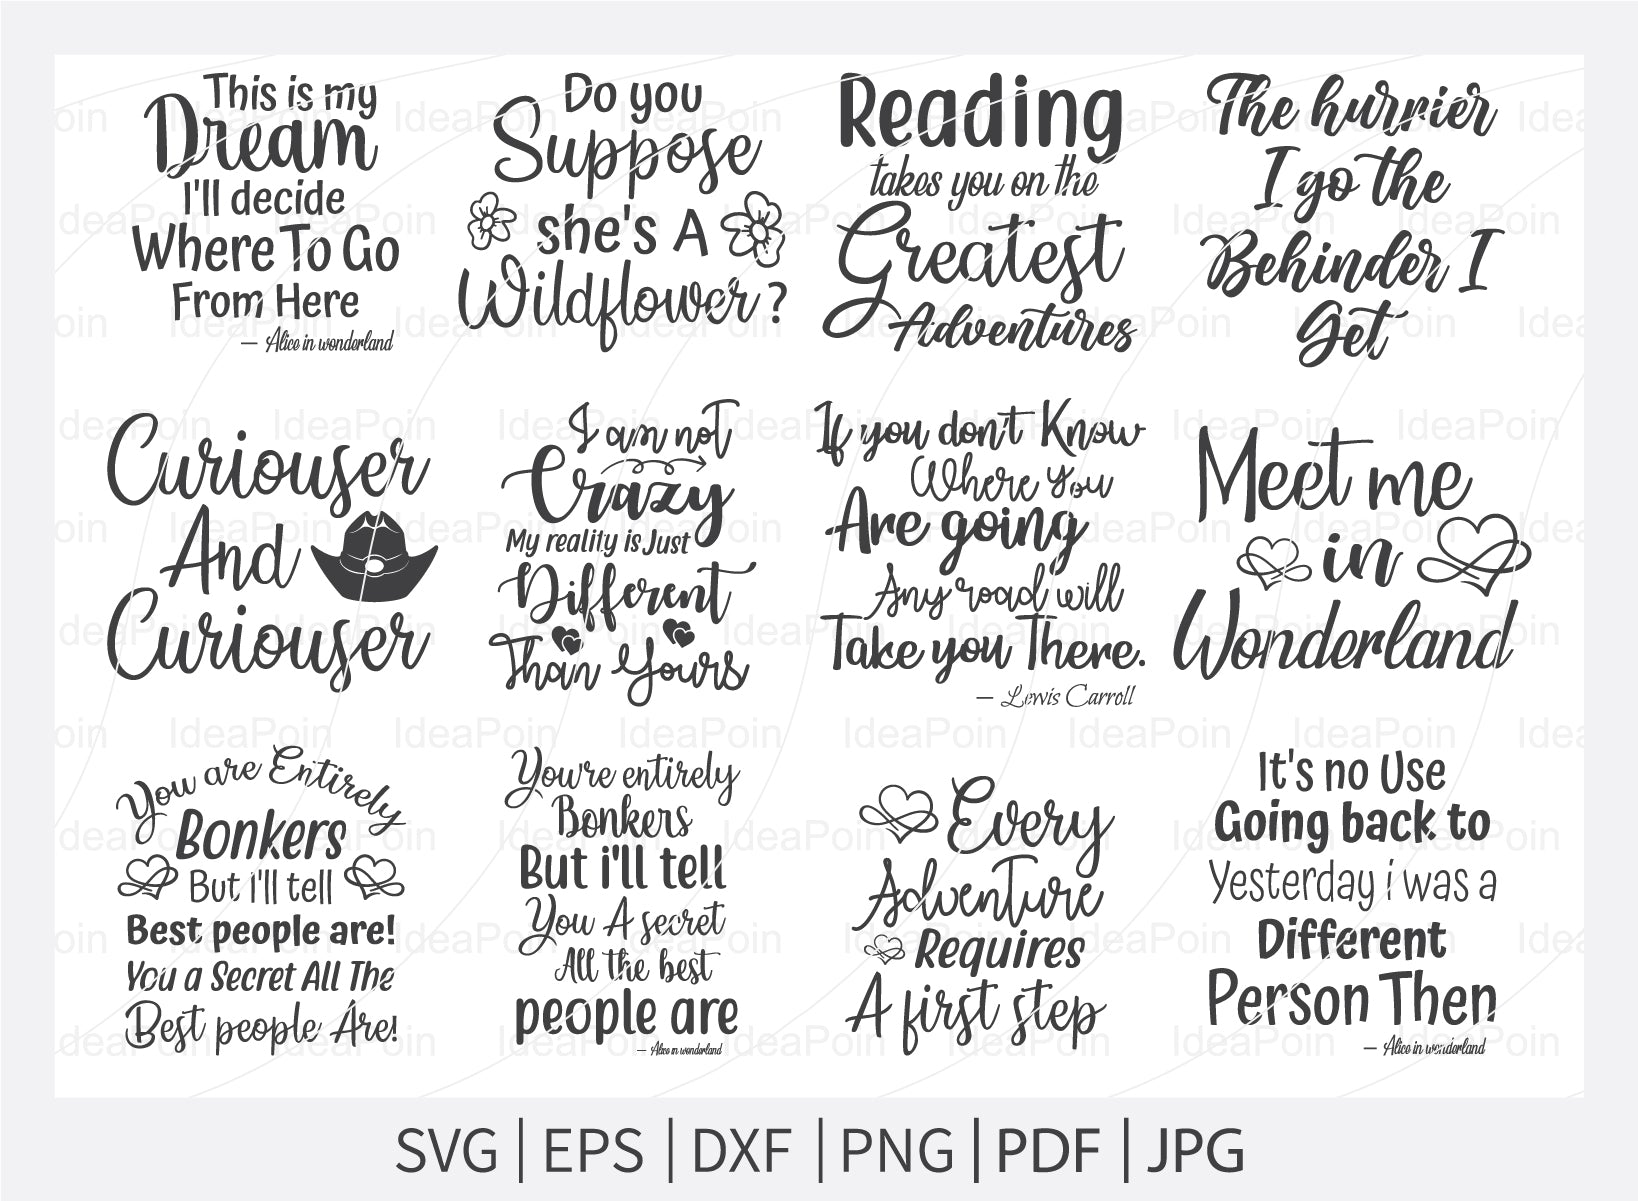 This is my
Dream
I'll decide
Where To Go
From Here
— Alice in wonderland
Do you
Suppose
she's A
Wildflower?
Reading
takes you on the
Greatest
Adventures
The hurrier
I go the
Behinder I
Get
Curiouser
And
Curiouser
I am not
Crazy
My reality is Just
Different
Than Yours
If you don't Know
Where You
Are going
Any road will
Take you There.
— Lewis Carroll
Meet me
in
Wonderland
You are Entirely
Bonkers
But I'll tell
Best people are!
You a Secret All The
Best people Are!
You're entirely
Bonkers
But i'll tell
You A secret
All the best
people are
— Alice in wonderland
Every
Adventure
Requires
A first step
It's no Use
Going back to
Yesterday i was a
Different
Person Then
— Alice in wonderland
IdeaPoin
SVG | EPS | DXF | PNG | PDF | JPG